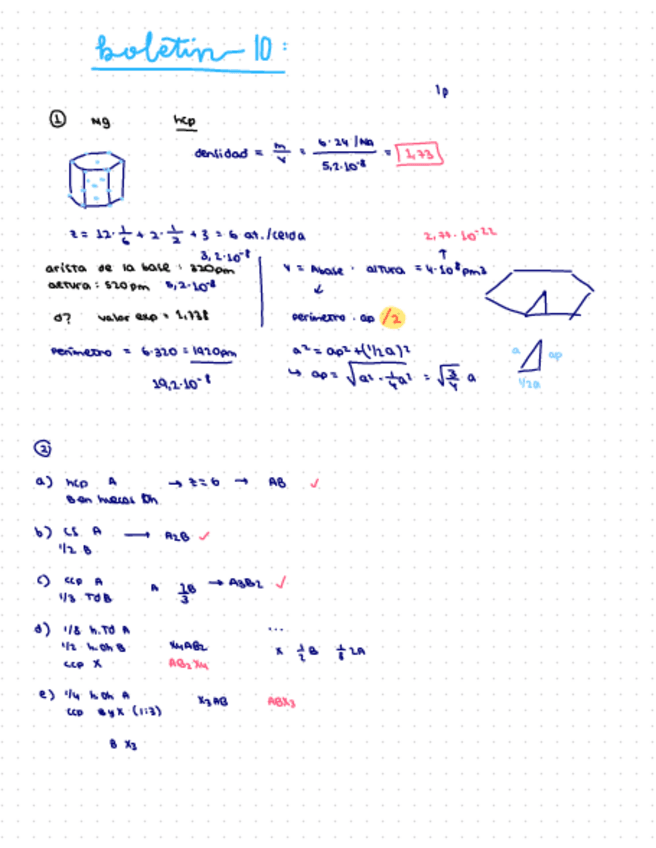 boletin 10:
1p
① Mg hcp
densidad = m/v = 6·24/Na / 5,2·10⁻⁸ = 1,73
z = 12·1/6 + 2·1/2 + 3 = 6 at./celda
2,77·10⁻²²
3,2·10⁻⁸
arista de la base: 320pm
altura: 520pm 5,2·10⁻⁸
V = Abase · altura = 4·10⁸ pm3
d? valor exp = 1,738
perimetro · ap /2
perimetro = 6·320 = 1920pm
19,2·10⁻⁸
a² = ap² + (1/2a)²
↳ ap = √a² - 1/4a² = √3/4 a
a ap
1/2a
②
a) hcp A → z=6 → AB ✓
B en huecos Oh
b) CS A → A2B ✓
1/2 B
c) ccp A A 2B/3 → A3B2 ✓
1/3 Td B
d) 1/8 h.Td A ...
1/2 h.Oh B X4AB2 X 1/2 B 1/8 2A
ccp X AB2X4
e) 1/4 h Oh A X3AB ABX3
ccp B y X (1:3)
B X3